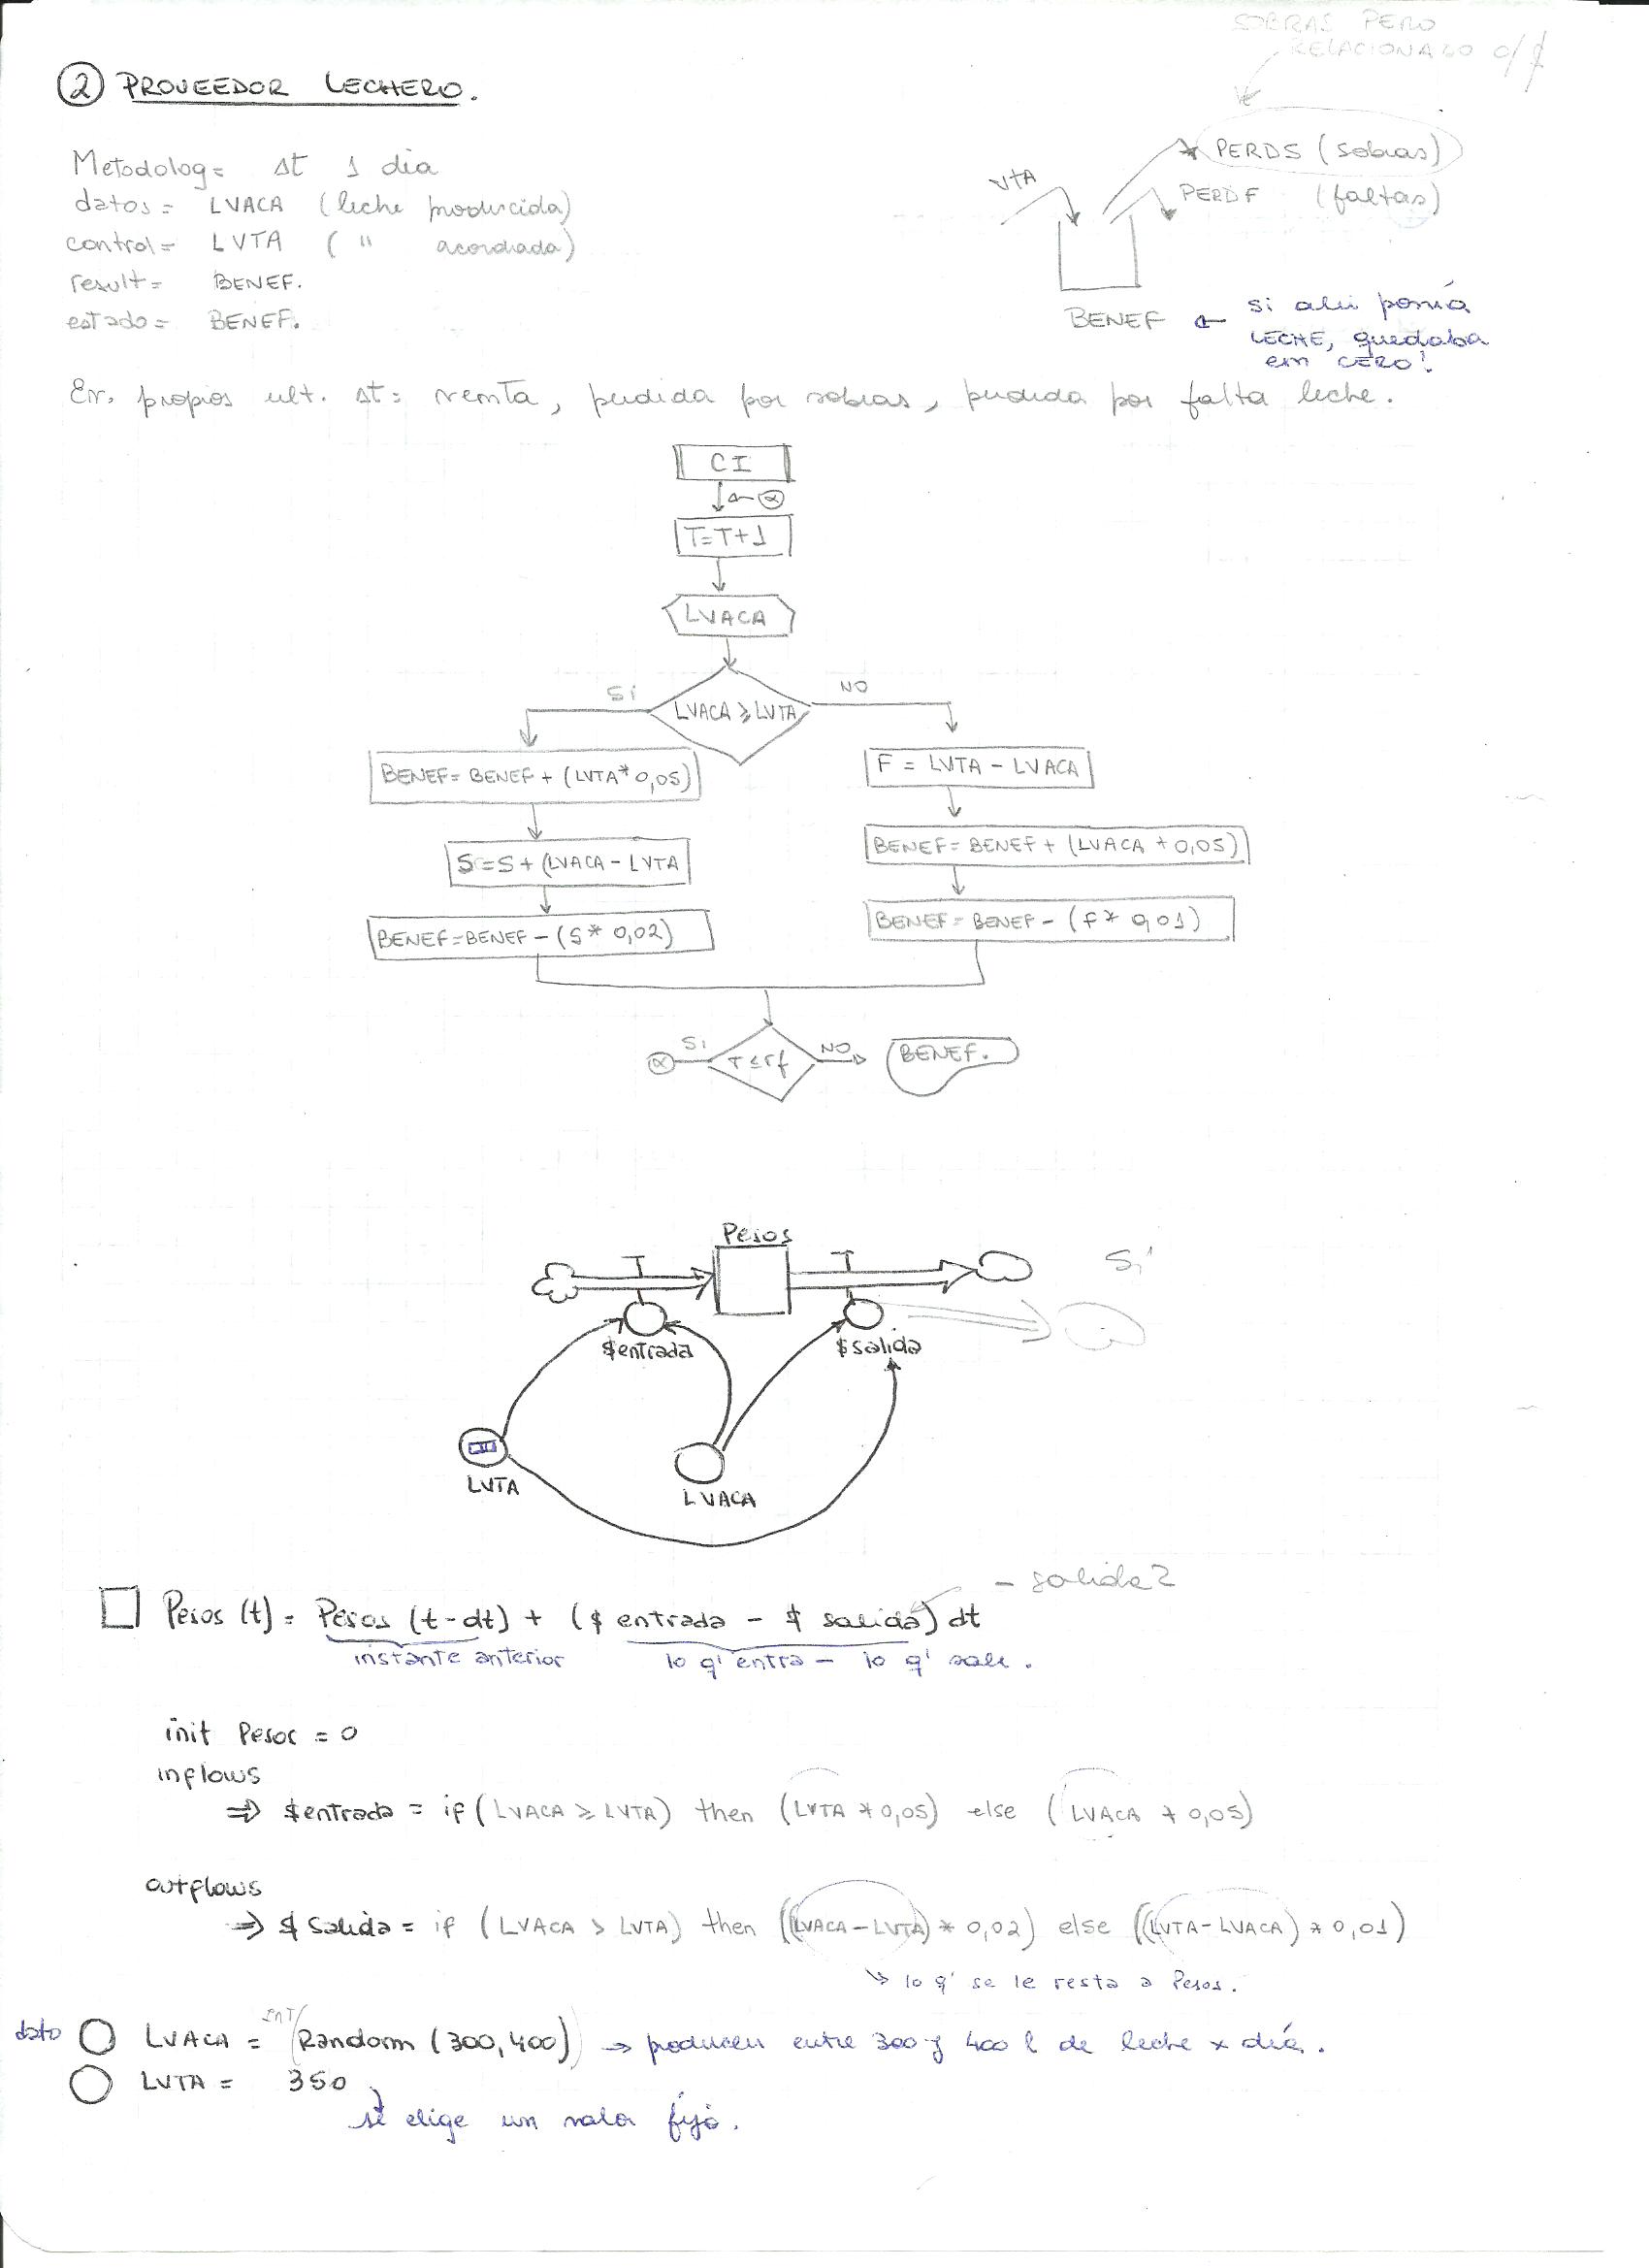 SOBRAS PERO
RELACIONADO c/$
② PROVEEDOR LECHERO.
Metodolog= Δt 1 dia
datos= LVACA (leche producida)
control= LVTA ( " acordada)
result= BENEF.
estado= BENEF.
VTA
PERDS (sobras)
PERDF (faltas)
BENEF ← si ahi ponía
LECHE, quedaba
en CERO!
Ev. propios ult. Δt: venta, perdida por sobras, perdida por falta leche.
CI
α
T=T+1
LVACA
Si
LVACA ≥ LVTA
NO
BENEF= BENEF + (LVTA * 0,05)
F = LVTA - LVACA
S=S+(LVACA - LVTA
BENEF= BENEF + (LVACA * 0,05)
BENEF=BENEF - (S * 0,02)
BENEF= BENEF - (F * 0,01)
α
Si
T ≤ Tf
NO
BENEF.
Pesos
Si
$entrada
$salida
LVTA
LVACA
- salida2
Pesos (t) = Pesos (t-dt) + ($ entrada - $ salida) dt
instante anterior
lo q' entra - lo q' sale.
init Pesos = 0
inflows
⇒ $entrada = if (LVACA ≥ LVTA) then (LVTA * 0,05) else (LVACA * 0,05)
outflows
⇒ $ Salida = if (LVACA > LVTA) then ((LVACA-LVTA) * 0,02) else ((LVTA-LVACA) * 0,01)
↘ lo q' se le resta a Pesos.
dato LVACA = INT(Random (300,400)) → producen entre 300 y 400 l de leche x día.
LVTA = 350
se elige un valor fijo.